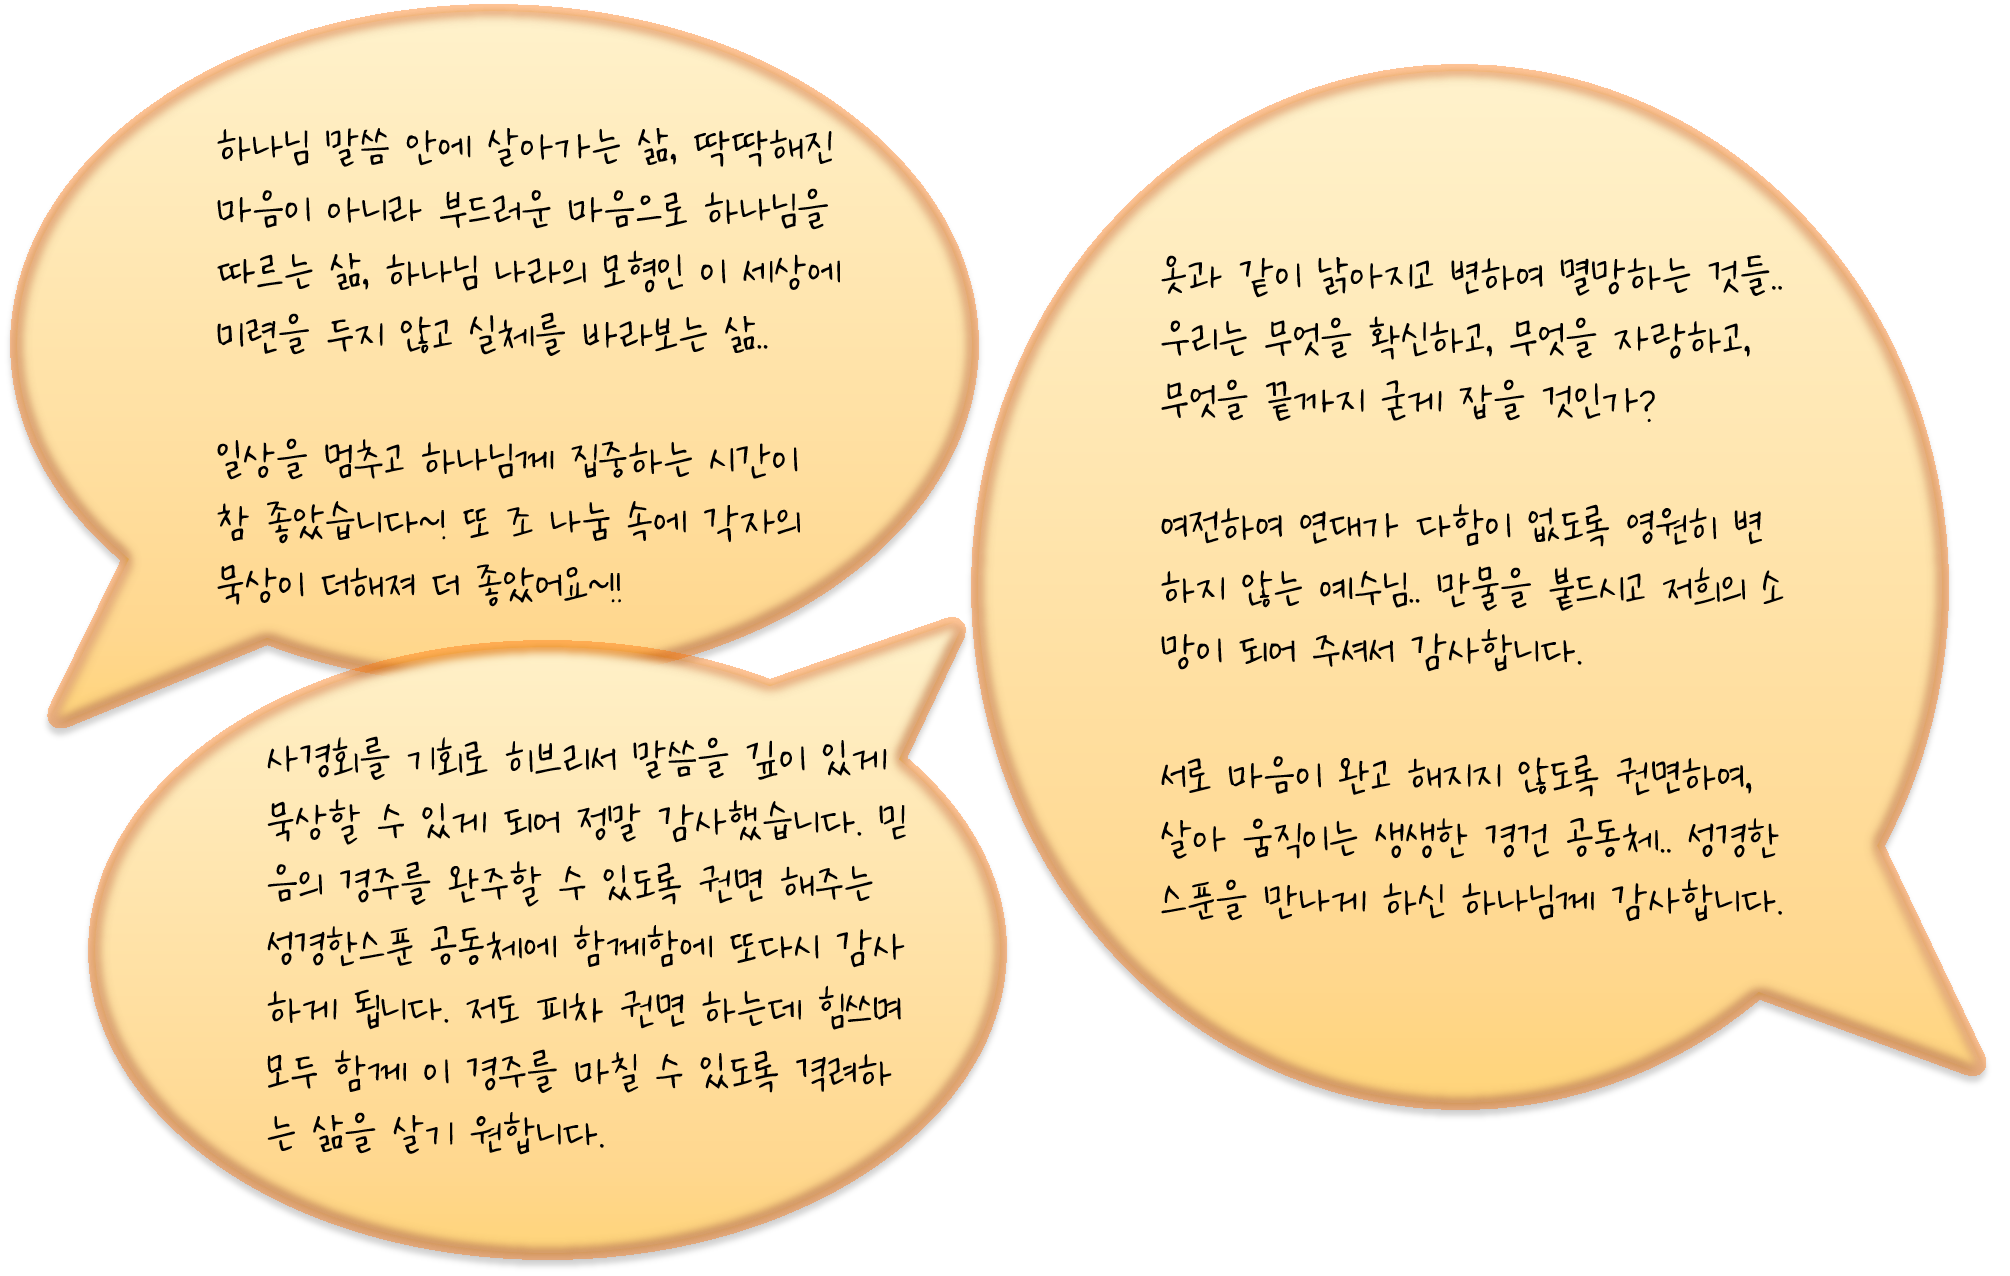 하나님 말씀 안에 살아가는 삶, 딱딱해진
마음이 아니라 부드러운 마음으로 하나님을
따르는 삶, 하나님 나라의 모형인 이 세상에
미련을 두지 않고 실체를 바라보는 삶..
일상을 멈추고 하나님께 집중하는 시간이
참 좋았습니다~! 또 조 나눔 속에 각자의
묵상이 더해져 더 좋았어요~!!
사경회를 기회로 히브리서 말씀을 깊이 있게
묵상할 수 있게 되어 정말 감사했습니다. 믿
음의 경주를 완주할 수 있도록 권면 해주는
성경한스푼 공동체에 함께함에 또다시 감사
하게 됩니다. 저도 피차 권면 하는데 힘쓰며
모두 함께 이 경주를 마칠 수 있도록 격려하
는 삶을 살기 원합니다.
옷과 같이 낡아지고 변하여 멸망하는 것들..
우리는 무엇을 확신하고, 무엇을 자랑하고,
무엇을 끝까지 굳게 잡을 것인가?
여전하여 연대가 다함이 없도록 영원히 변
하지 않는 예수님.. 만물을 붙드시고 저희의 소
망이 되어 주셔서 감사합니다.
서로 마음이 완고 해지지 않도록 권면하여,
살아 움직이는 생생한 경건 공동체.. 성경한
스푼을 만나게 하신 하나님께 감사합니다.